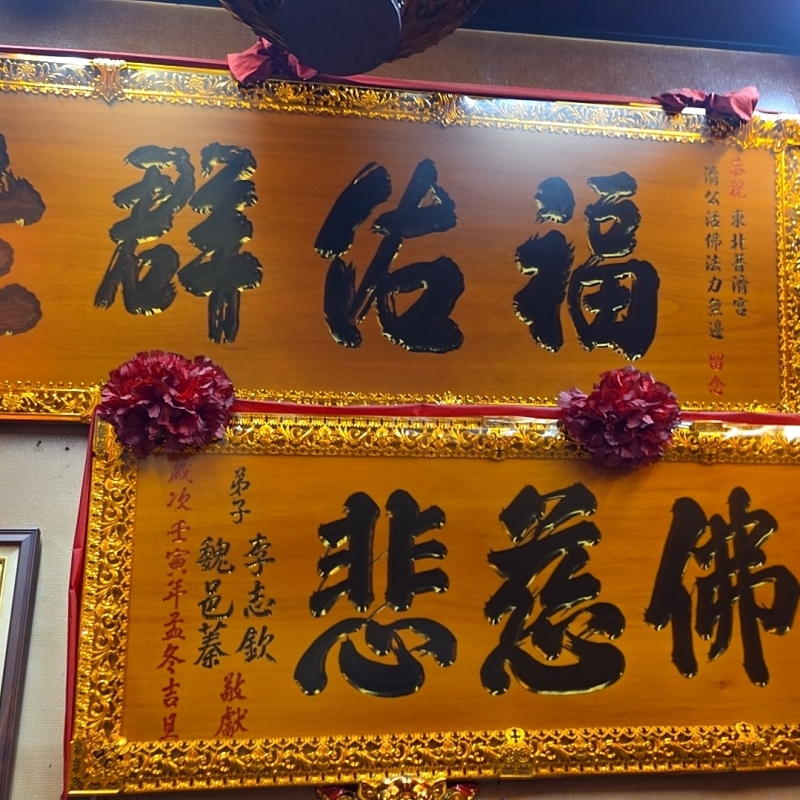 恭祝 東北普濟宮
濟公活佛法力無邊 留念
福佑群生
佛慈悲
弟子
李志欽
魏邑蓁
敬獻
歲次壬寅年孟冬吉旦